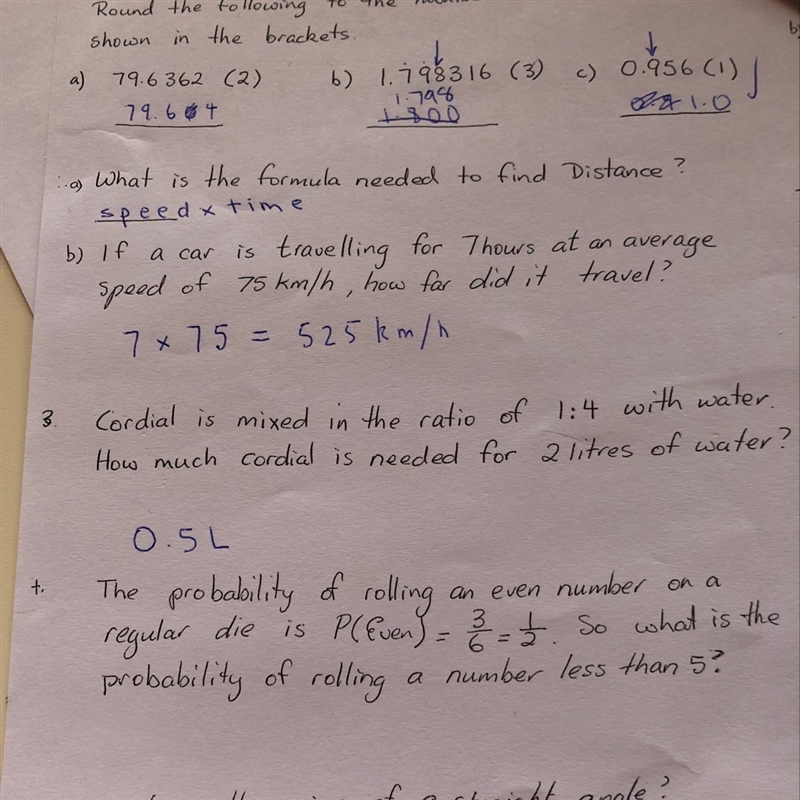 Round the following to the
shown in the brackets.
a) 79.6362 (2) b) 1.798316 (3) c) 0.956 (1)
79.64 1.798 1.0
1.800
a) What is the formula needed to find Distance?
speed x time
b) If a car is travelling for 7 hours at an average
speed of 75 km/h, how far did it travel?
7 x 75 = 525 km/h
3. Cordial is mixed in the ratio of 1:4 with water.
How much cordial is needed for 2 litres of water?
0.5L
The probability of rolling an even number on a
regular die is P(Even) = 3/6 = 1/2. So what is the
probability of rolling a number less than 5?
of a straight angle?